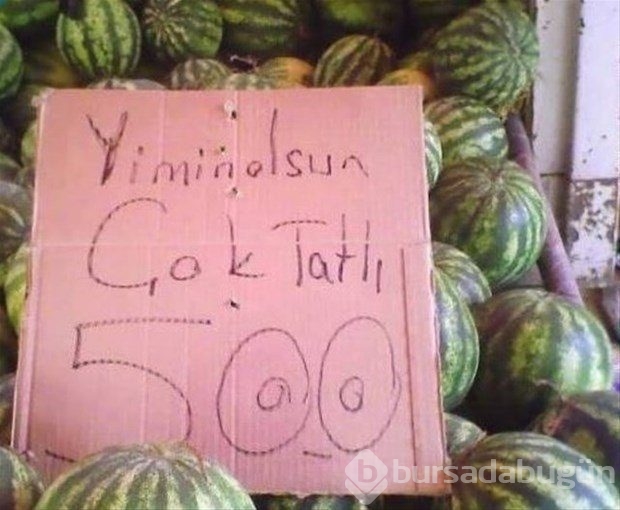 Yiminolsun
Çok Tatlı
500
bursadabugün